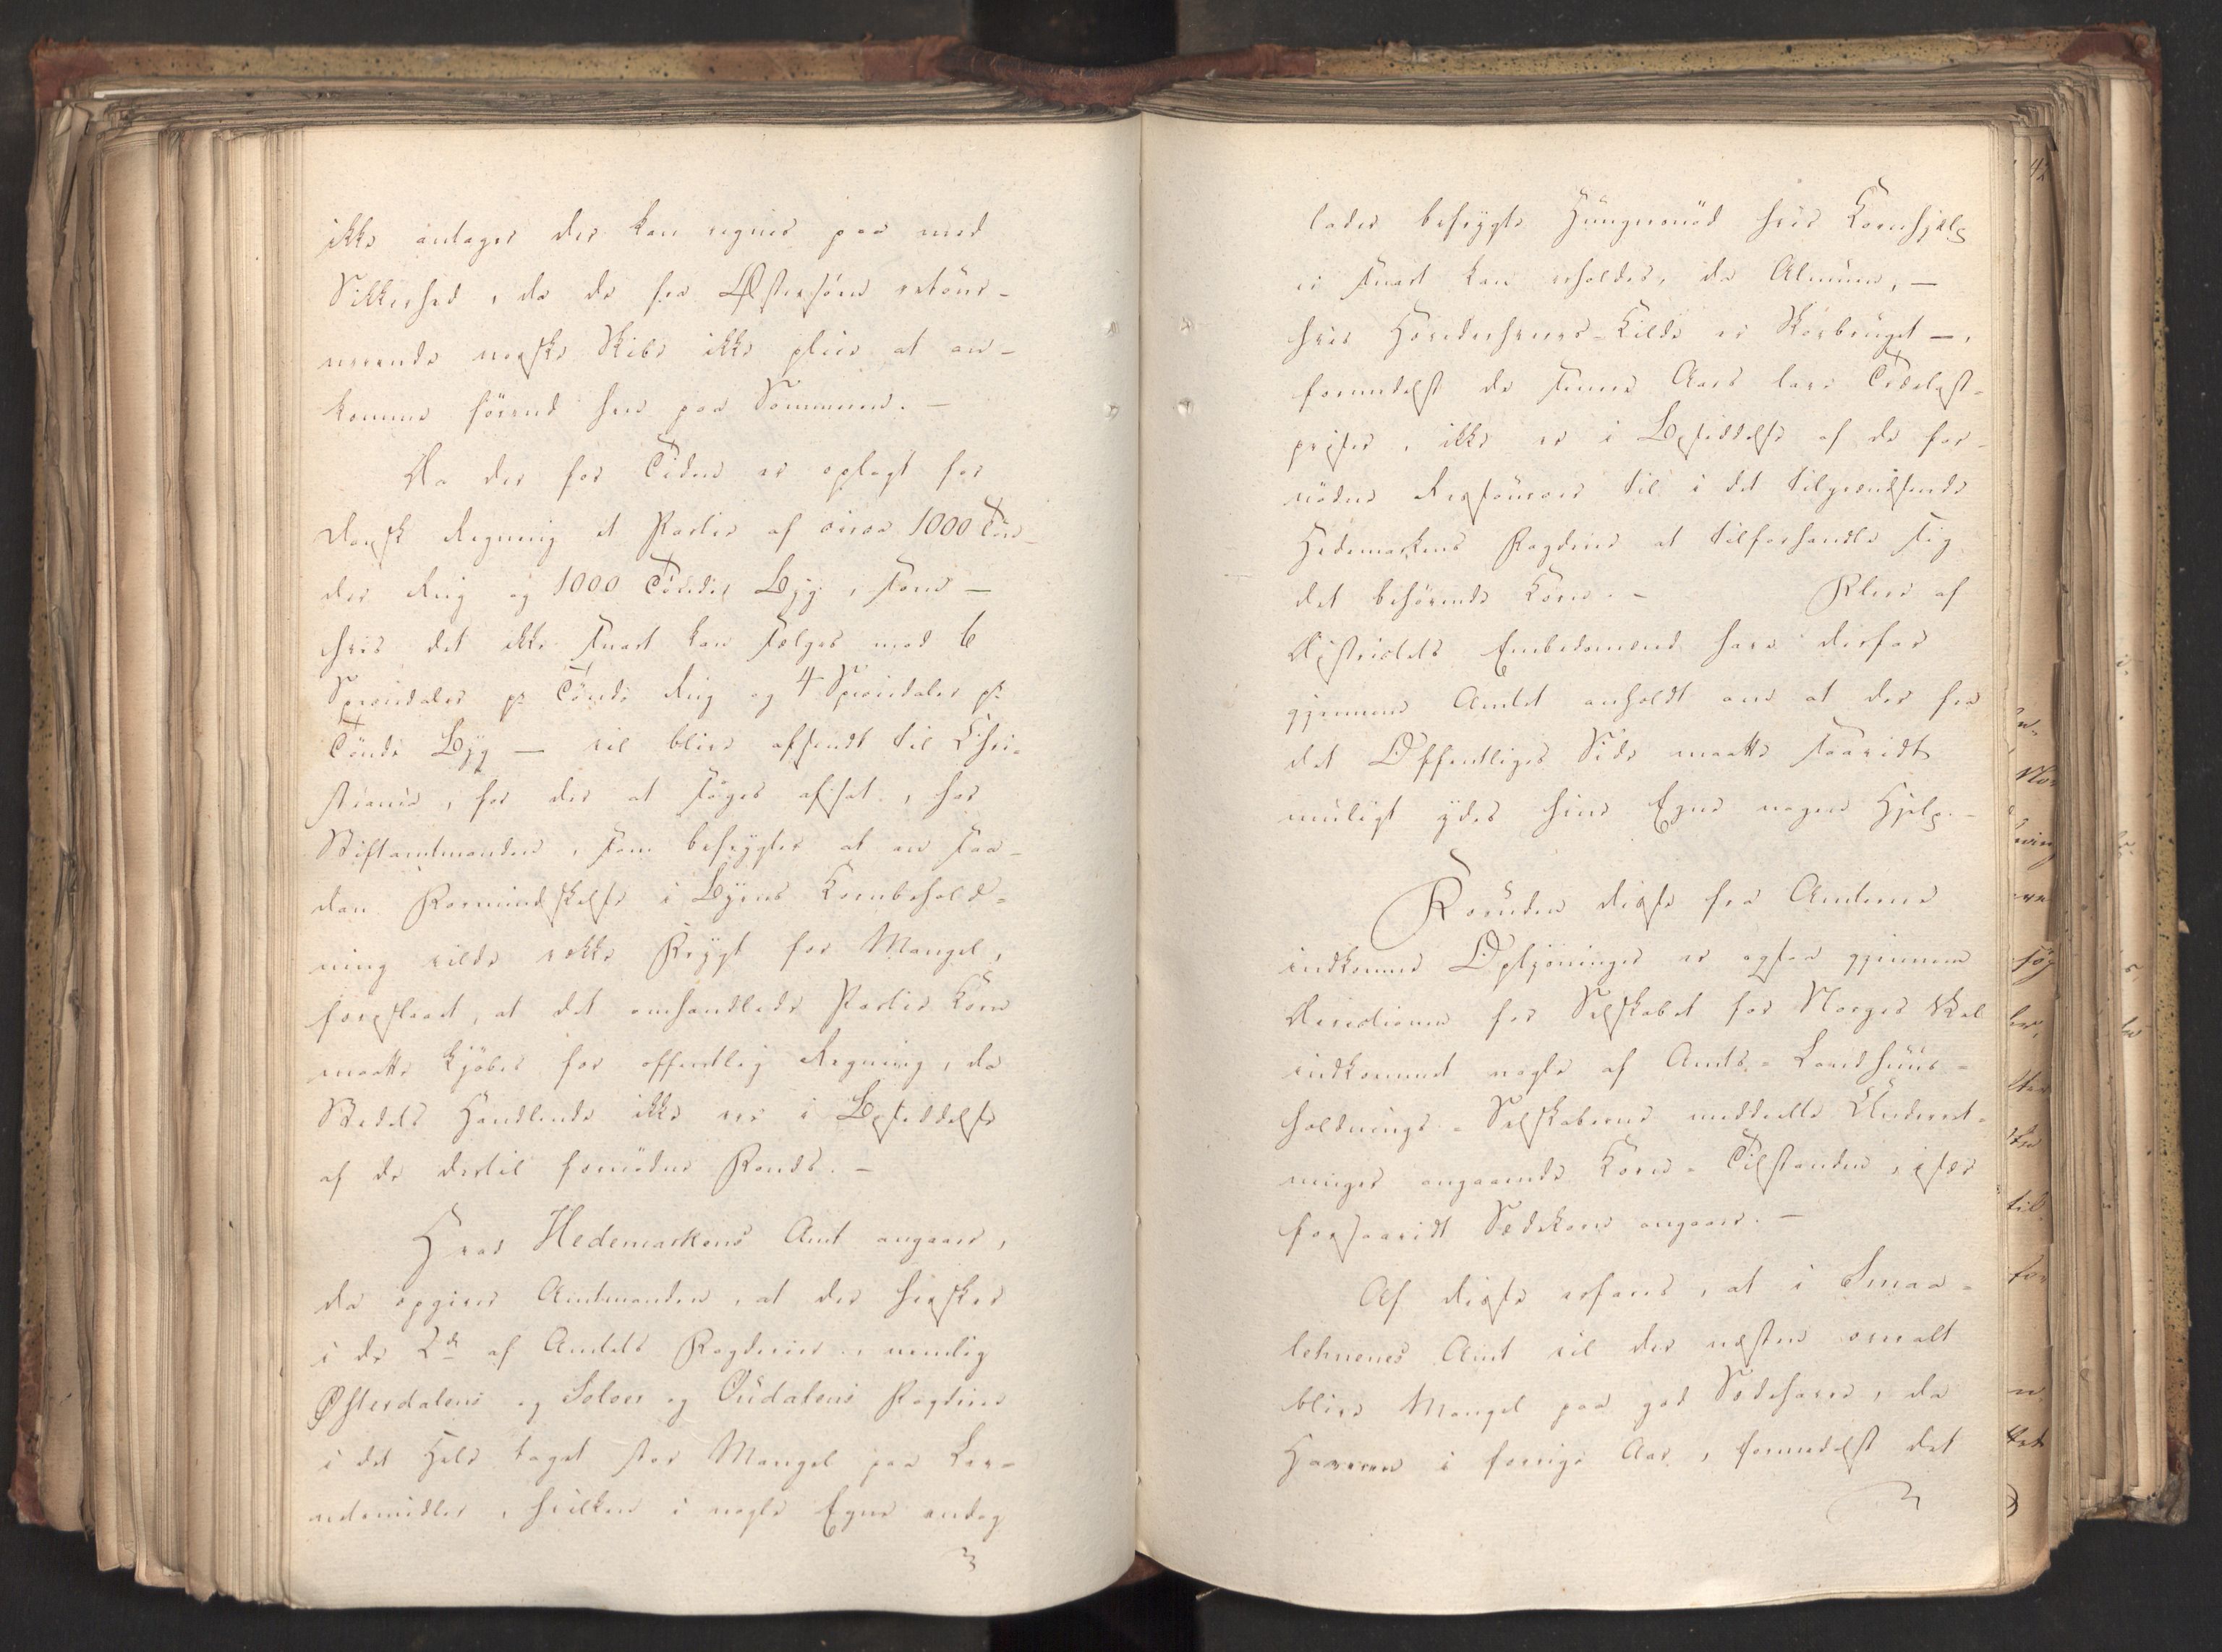 ikke antages der kan regnes paa med
Sikkerhed, da de fra Østersøen retour-
nerende norske Skibe ikke pleie at an-
komme førend hen paa Sommeren. —
Da der for Tiden er oplagt for
Dansk Regning et Partie af circa 1000 Tøn-
der Rug og 1000 Tønder Byg, som —
hvis det ikke snart kan sælges med 6
Speciedaler pr Tønde Rug og 4 Speciedaler pr
Tønde Byg — vil blive afsendt til Chri-
stiania, for der at søges afsat, har
Stiftamtmanden, som befrygter at en saa-
dan Formindskelse i Byens Kornbehold-
ning vilde vække Frygt for Mangel,
foreslaaet, at det omhandlede Partie Korn
maatte kjøbes for offentlig Regning, da
Stedets Handlende ikke ere i Besiddelse
af de dertil fornødne Fonds. —
Hvad Hedemarkens Amt angaaer,
da opgiver Amtmanden, at der hersker
i de 2de af Amtets Fogderier, nemlig
Østerdalens og Soloer og Oudalens Fogderier
i det Hele taget stor Mangel paa Lev-
netsmidler, hvilken i nogle Egne endog
lader befrygte Hungersnød hvis Kornhjælp
ei snart kan erholdes, da Almuen, —
hvis Hovederhvervs-Kilde er Skovbruget —,
formedelst de senere Aars lave Trælast-
priser, ikke er i Besiddelse af de for-
nødne Ressourcer til i det tilgrændsende
Hedemarkens Fogderie at tilforhandle sig
det behøvende Korn. — Flere af
Districtets Embedsmænd have derfor
gjennem Amtet anholdt om at der fra
det Offentliges Side maatte saavidt
muligt ydes hine Egne nogen Hjelp. —
Foruden disse fra Amterne
indkomne Oplysninger er ogsaa gjennem
Directionen for Selskabet for Norges Vel
indkommet nogle af Amts-Landhuus-
holdnings-Selskaberne meddeelte Underret-
ninger angaaende Korn-Tilstanden, især
forsaavidt Sædekorn angaaer. —
Af disse erfares, at i Smaa-
lehnenes Amt vil der næsten overalt
blive Mangel paa god Sædehavre, da
Havren i forrige Aar, formedelst det